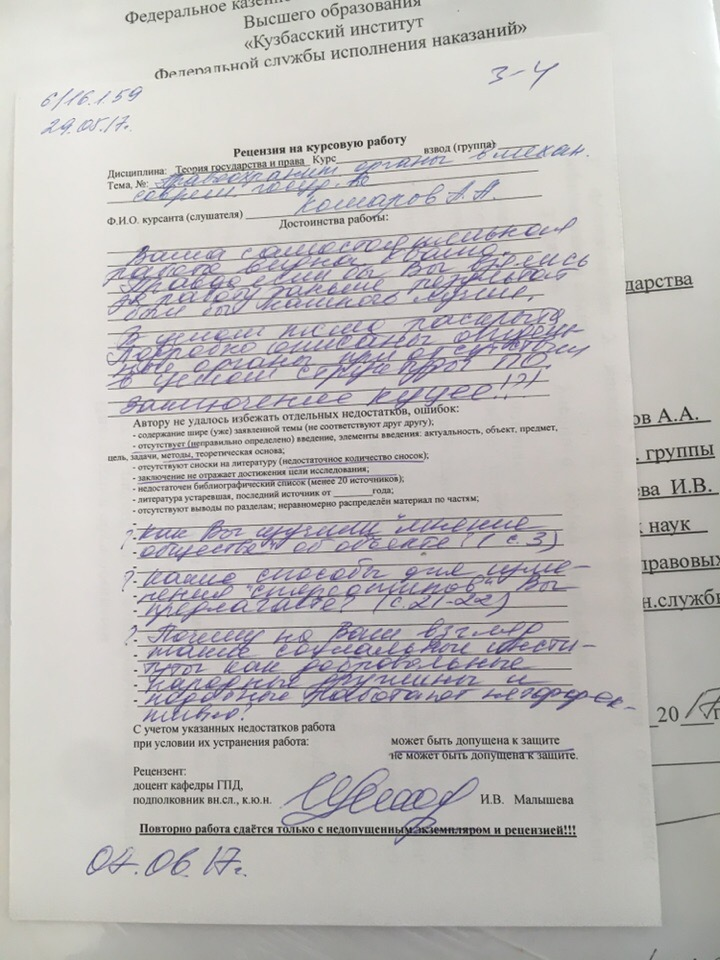 Федеральное казен
Высшего образования
«Кузбасский институт
Федеральной службы исполнения наказаний»
6/16.159
29.05.17г.
3-4
Рецензия на курсовую работу
Дисциплина: Теория государства и права Курс взвод (группа)
Тема, №: Правоохранит. органы в механ.
соврем. госуд.
Ф.И.О. курсанта (слушателя) Комаров А.А.
Достоинства работы:
Ваша самостоятельная
работа видна
Правда если бы Вы взялись
за работу раньше результат
был бы намного лучше.
В целом раскрыта
Подробно описаны отдель-
ные органы при отсутствии
в целом структуры ПО
Заключение куцее!!!
Автору не удалось избежать отдельных недостатков, ошибок:
- содержание шире (уже) заявленной темы (не соответствуют друг другу);
- отсутствует (неправильно определено) введение, элементы введения: актуальность, объект, предмет,
цель, задачи, методы, теоретическая основа;
- отсутствуют сноски на литературу (недостаточное количество сносок);
- заключение не отражает достижения цели исследования;
- недостаточен библиографический список (менее 20 источников);
- литература устаревшая, последний источник от года;
- отсутствуют выводы по разделам; неравномерно распределён материал по частям;
? - Как Вы изучили "мнение
общества" об объекте? (с. 3)
? - Какие способы для
Вы
предлагаете? (с. 21-22)
? - Почему на Ваш взгляд
такие социальные инсти-
туты как добровольные
народные дружины и
подобные работают неэффек-
тивно?
С учетом указанных недостатков работа
при условии их устранения работа: может быть допущена к защите
не может быть допущена к защите.
Рецензент:
доцент кафедры ГПД,
подполковник вн.сл., к.ю.н. И.В. Малышева
Повторно работа сдаётся только с недопущенным экземпляром и рецензией!!!
04.06.17г.
дарства
ов А.А.
группы
ева И.В.
к наук
правовых
н.службы
20 17 г